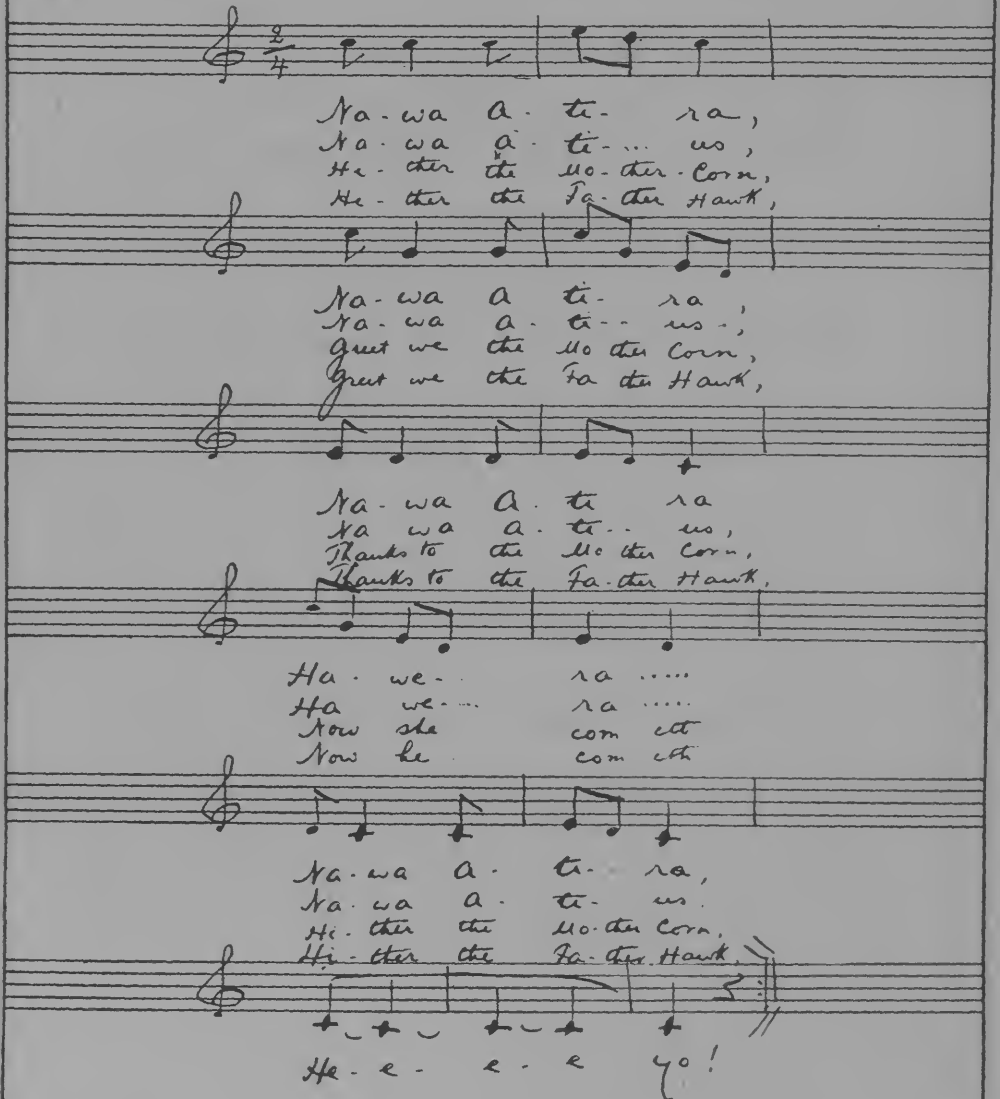 2/4
Na - wa A - ti - ra,
Na - wa a - ti - ... us,
He - ther the Mo - ther - Corn,
He - ther the Fa - ther Hawk,
Na - wa A ti - ra,
Na - wa a - ti - - us -,
Greet we the Mo ther Corn,
Greet we the Fa ther Hawk,
Na - wa A - ti ra
Na wa a - ti - - us,
Thanks to the Mo ther Corn,
Thanks to the Fa - ther Hawk.
Ha - we - ra .....
Ha we - ... ra .....
Now she com eth
Now he com eth
Na - wa A - ti - ra,
Na - wa a - ti - us.
Hi - ther the Mo - ther Corn,
Hi - ther the Fa - ther Hawk.
He - e - e - e yo!